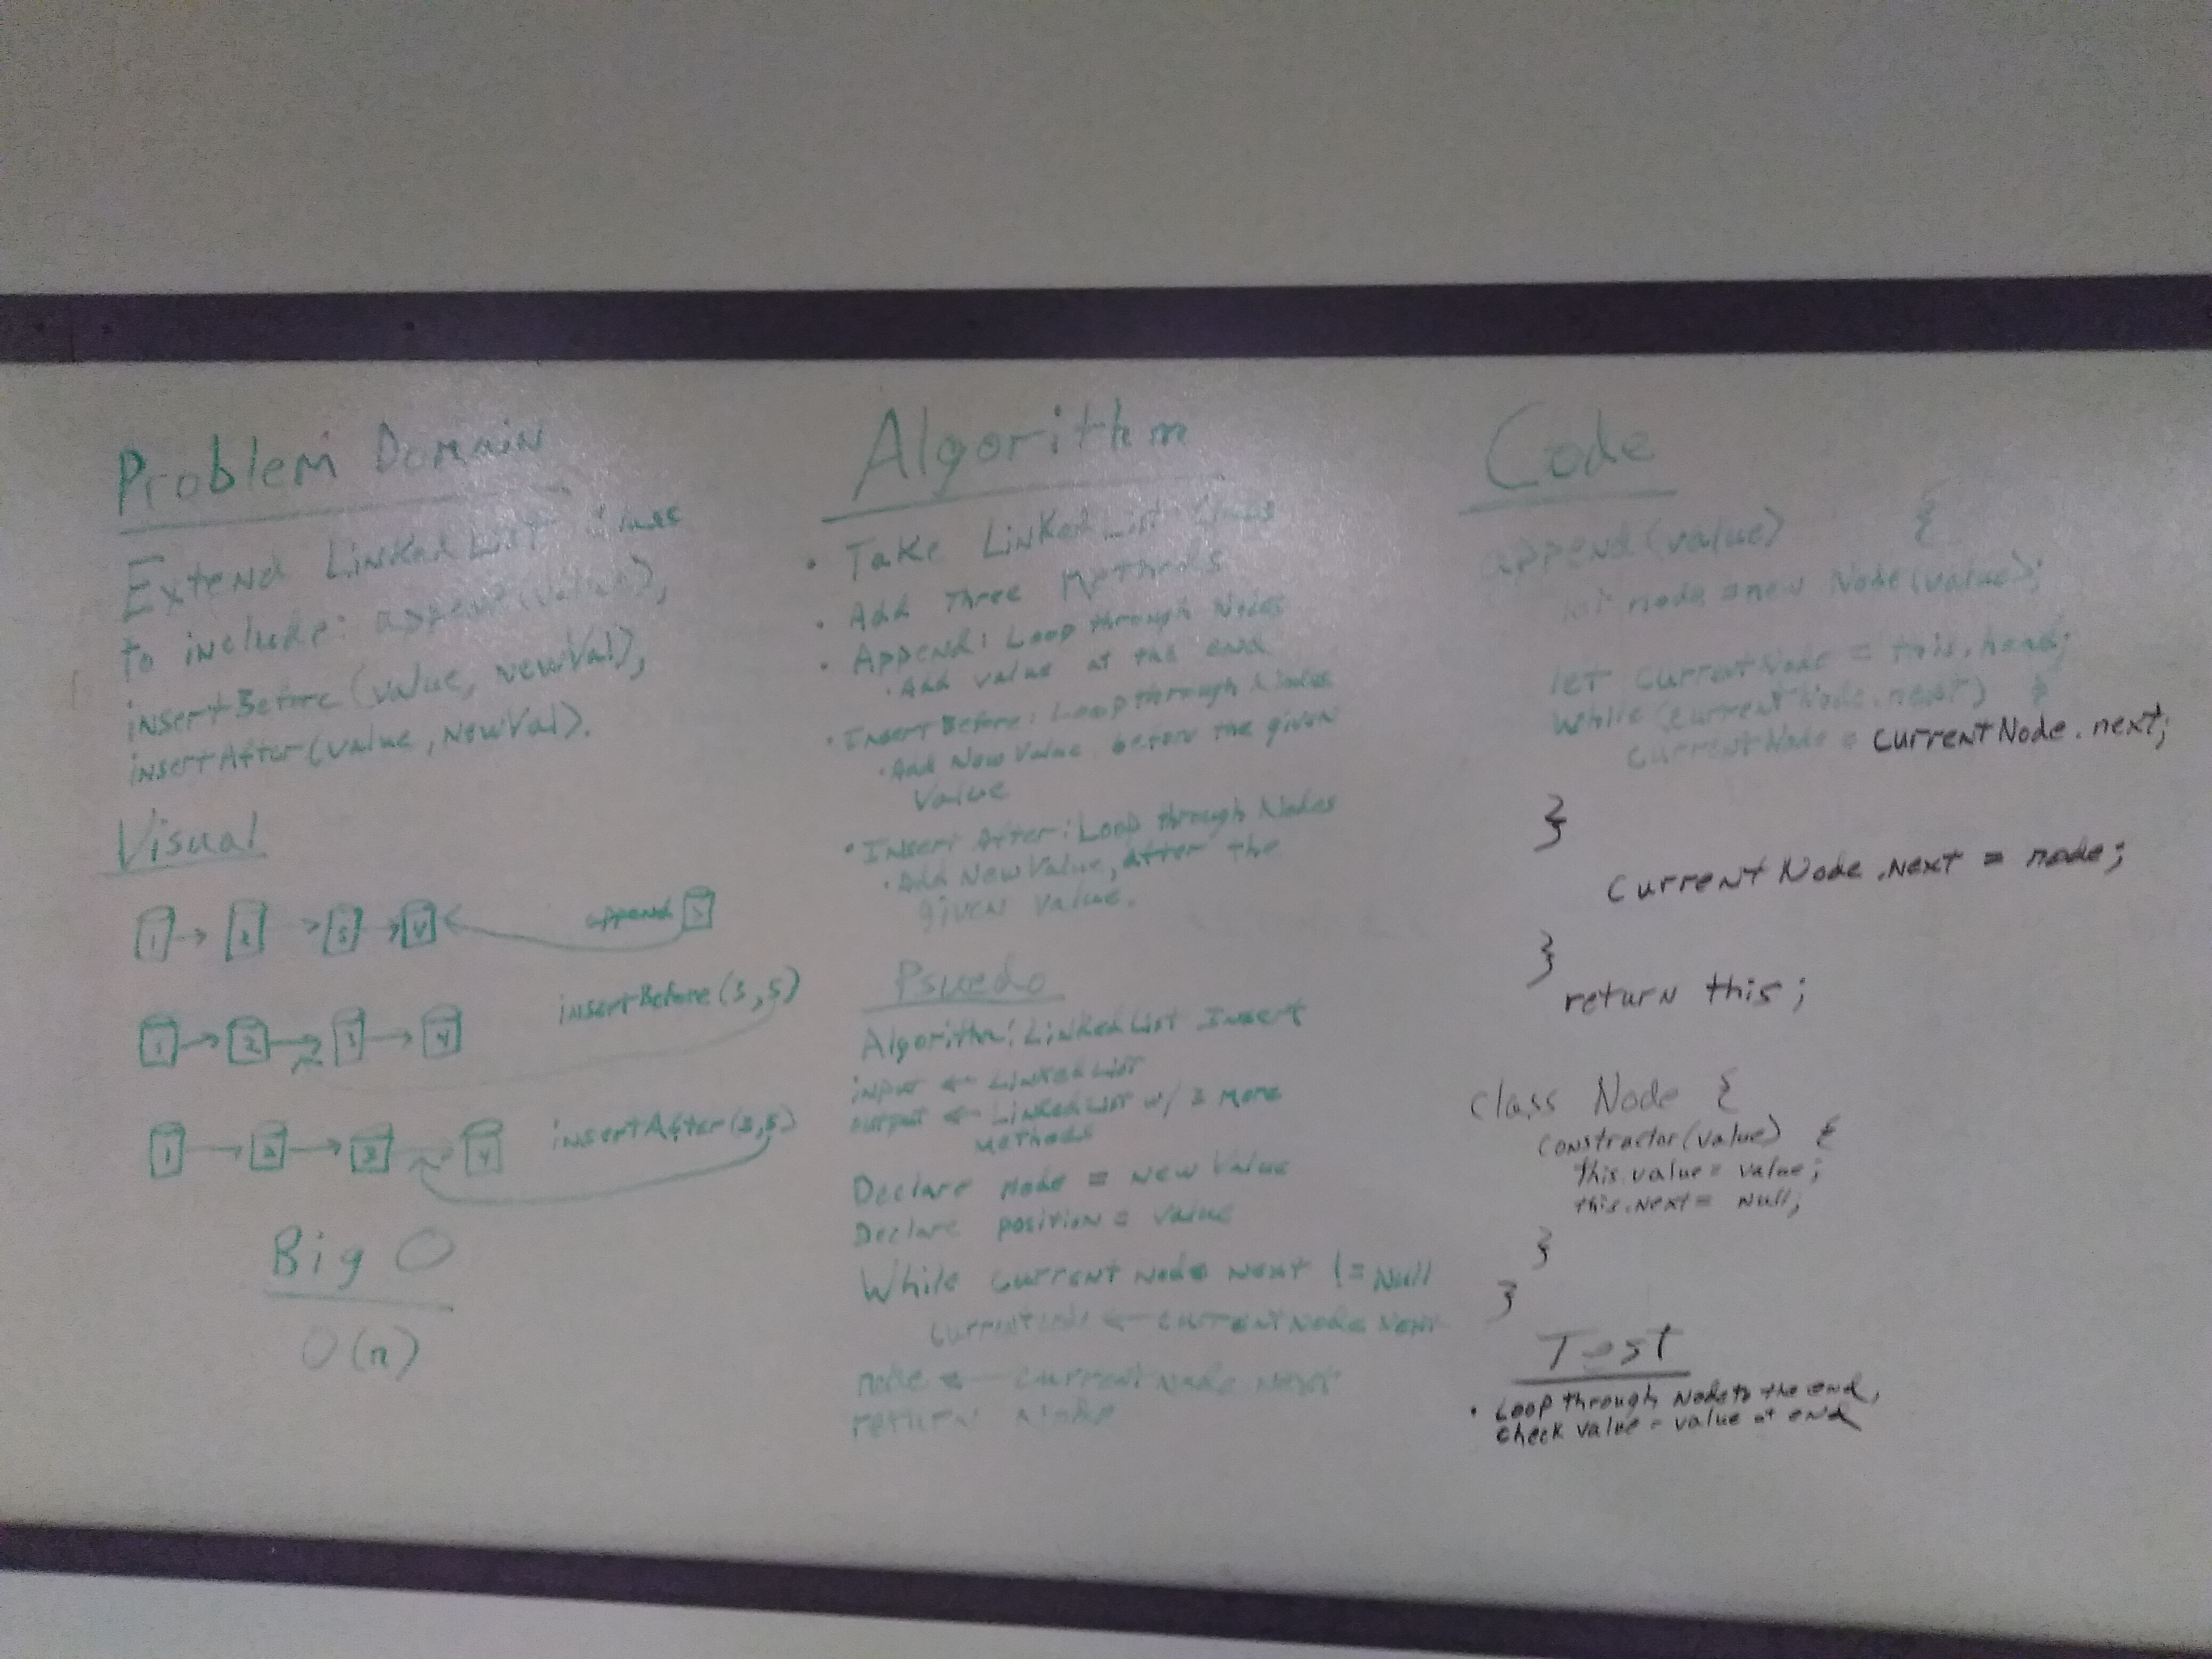 Problem Domain
Extend Linked List Class
to include: append(value),
insertBefore(value, newVal),
insertAfter(value, newVal).
Visual
1 2 3 4 append 5
1 2 3 4 insertBefore(3,5)
1 2 3 4 insertAfter(3,5)
Big O
O(n)
Algorithm
• Take Linked List Class
• Add Three Methods
• Append: Loop through Nodes
• Add value at the end
• Insert Before: Loop through Nodes
• Add New Value, before the given
Value
• Insert After: Loop through Nodes
• Add New Value, after the
given value.
Psuedo
Algorithm: Linked List Insert
input ← Linked List
output ← Linked List w/ 3 more
methods
Declare node = new Value
Declare position = value
While current node next != Null
currentnode ← current node next
node ← current node next
return node
Code
append(value) {
let node = new Node(value);
let currentNode = this.head;
while(currentNode.next) {
currentNode = currentNode.next;
}
currentNode.next = node;
}
return this;
class Node {
constructor(value) {
this.value = value;
this.next = null;
}
}
Test
• Loop through Node to the end,
check value = value at end